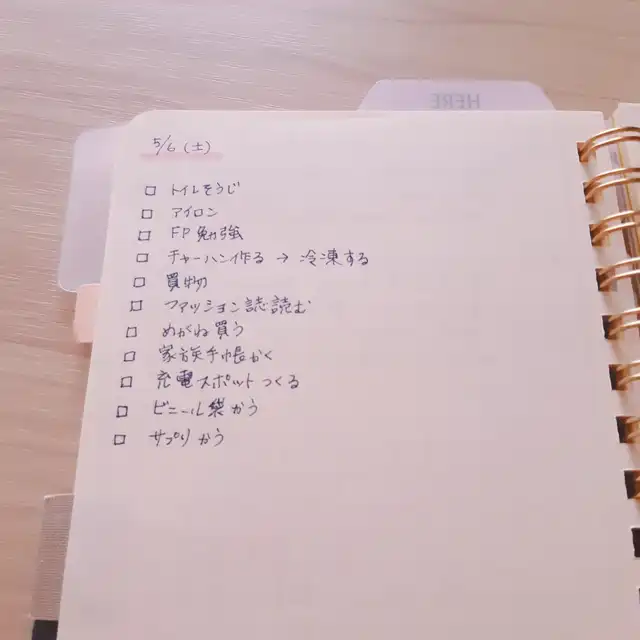 HERE
5/6 (土)
□ トイレそうじ
□ アイロン
□ FP 勉強
□ チャーハン作る → 冷凍する
□ 買物
□ ファッション誌読む
□ めがね買う
□ 家族手帳かく
□ 充電スポットつくる
□ ビニール袋かう
□ サプリかう